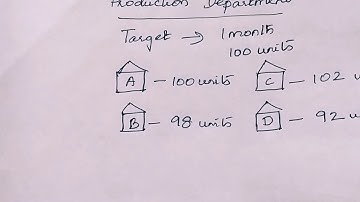 Production Department
Target → 1 month
100 units
A – 100 units C – 102
B – 98 units D – 92